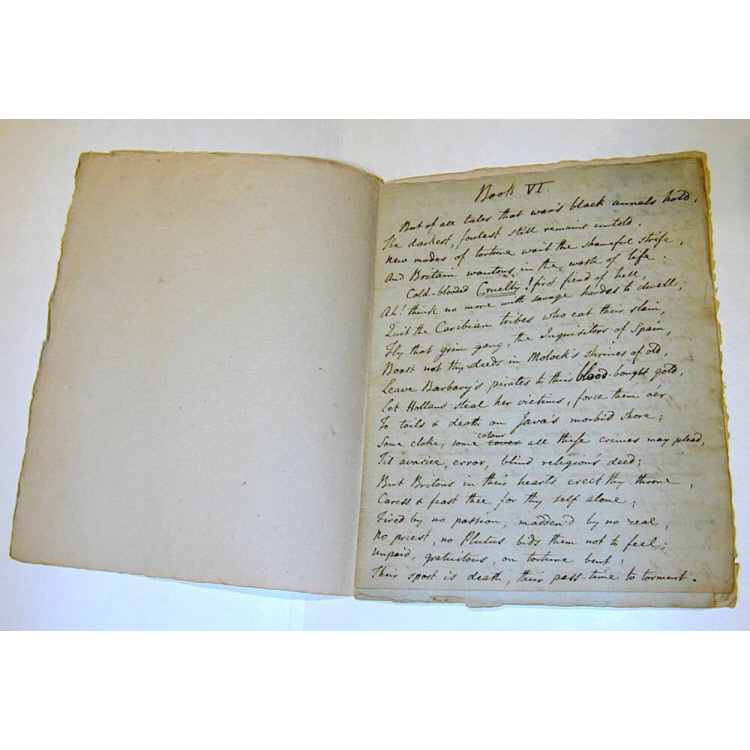 Book VI.
But of all tales that war's black annals hold,
The darkest, foulest still remains untold,
New modes of torture wait the shameful strife,
And Britain wantons in the waste of life:
Cold-blooded Cruelty! first fiend of hell,
Ah! think no more with savage hordes to dwell;
Quit the Caribian tribes who eat their slain,
Fly that grim gang, the Inquisitors of Spain,
Boast not thy deeds in Moloch's shrines of old,
Leave Barbary's pirates to their blood-bought gold,
Let Holland steal her victims, force them o'er
To toils & death on Java's morbid shore;
Some cloke, some colour all these crimes may plead,
Tis avarice, error, blind religion's deed;
But Britons in their hearts erect thy throne,
Caress & feast thee for thy self alone;
Fired by no passion, madden'd by no zeal,
No priest, no Plutus bids them not to feel;
Unpaid, gratuitous, on torture bent,
Their sport is death, their pass-time to torment.